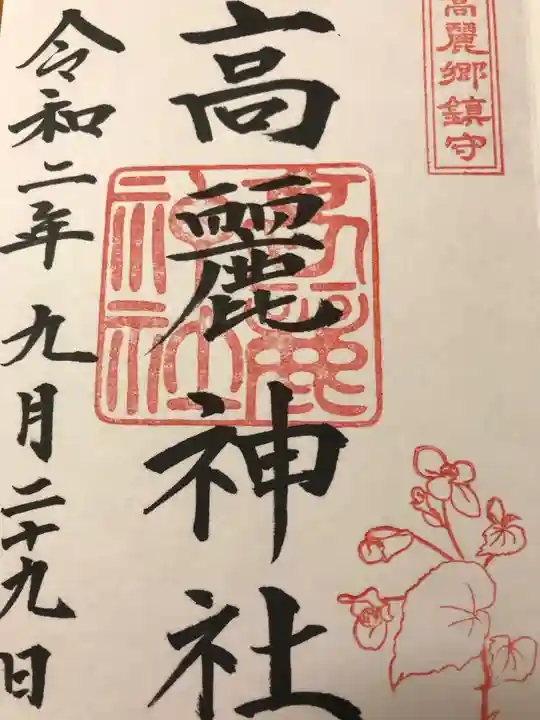 高麗郷鎮守
高麗神社
高麗神社
令和二年九月二十九日